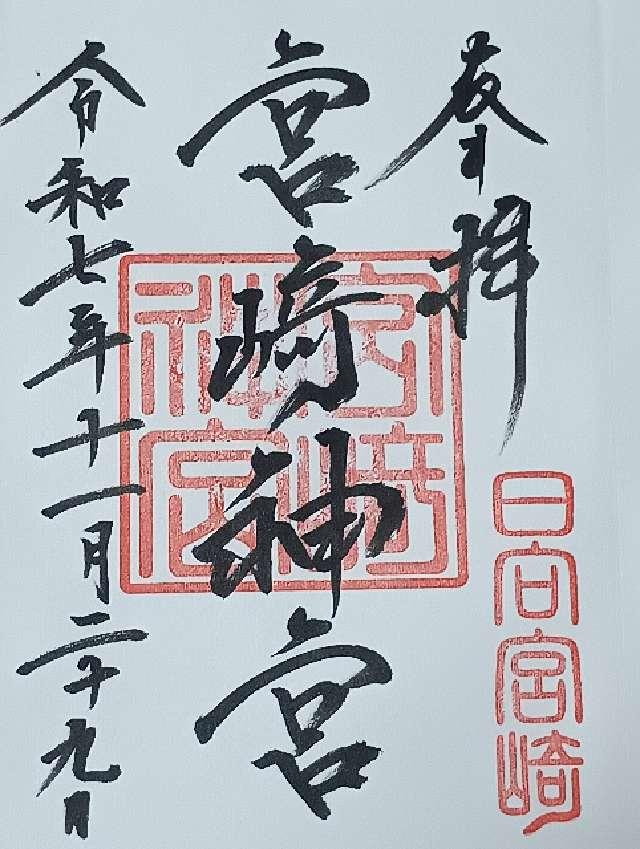 奉拝
日向宮崎
宮崎神宮
宮崎神宮
令和七年十一月二十九日